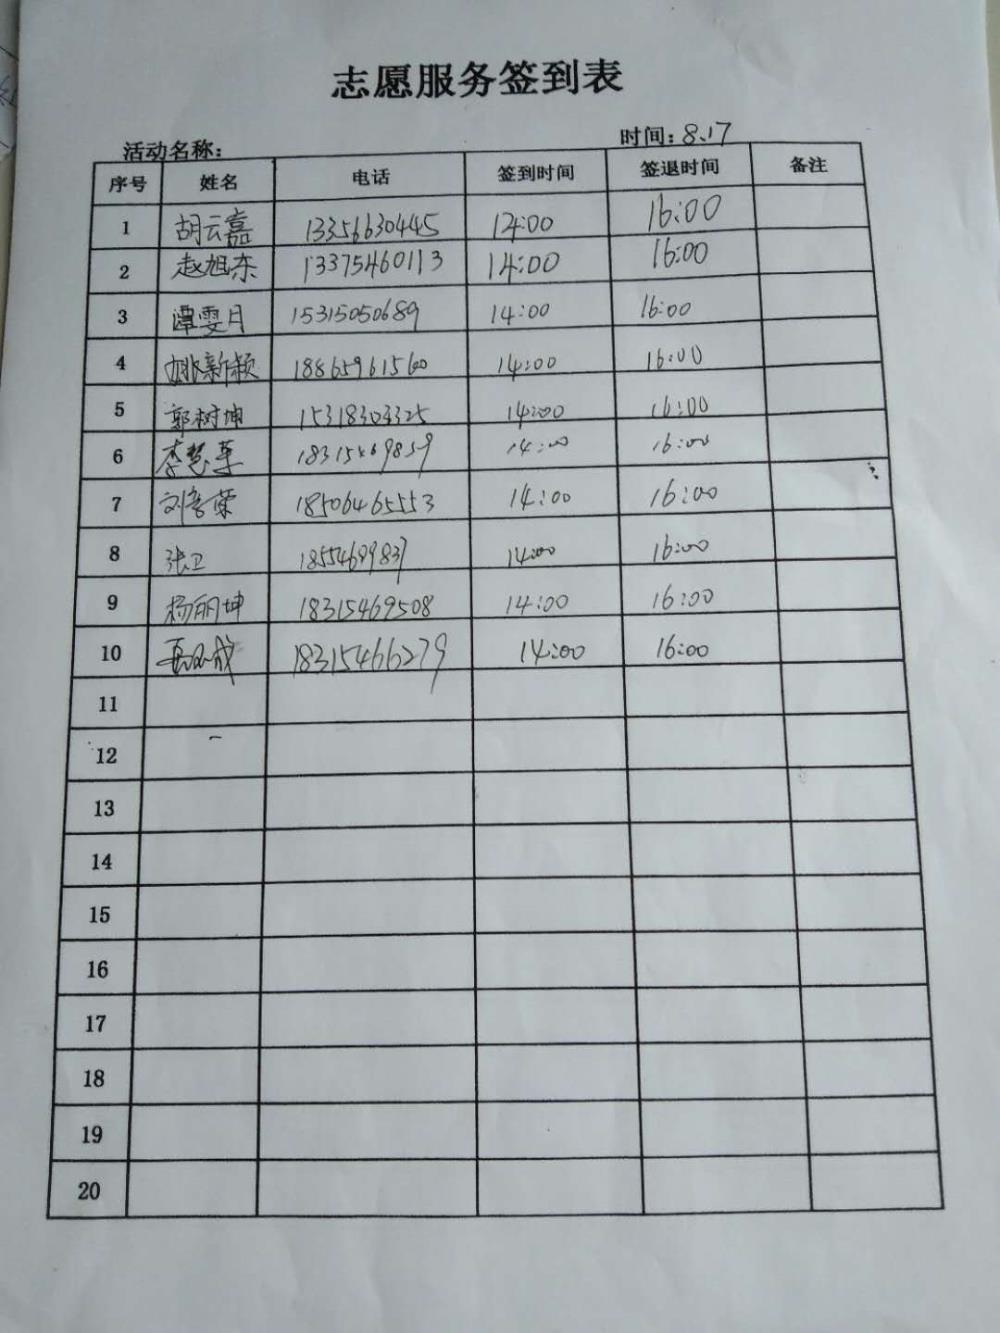 志愿服务签到表
活动名称: 时间: 8.17
序号 姓名 电话 签到时间 签退时间 备注
1 胡云嘉 13356630445 14:00 16:00
2 赵旭东 13375460113 14:00 16:00
3 谭雯月 15315050689 14:00 16:00
4 姚新颖 18865961560 14:00 16:00
5 郭树坤 15318303325 14:00 16:00
6 李慧 14:00 16:00
7 18506465553 14:00 16:00
8 张卫 14:00 16:00
9 杨丽坤 18315469508 14:00 16:00
10 18315466279 14:00 16:00
11
12
13
14
15
16
17
18
19
20